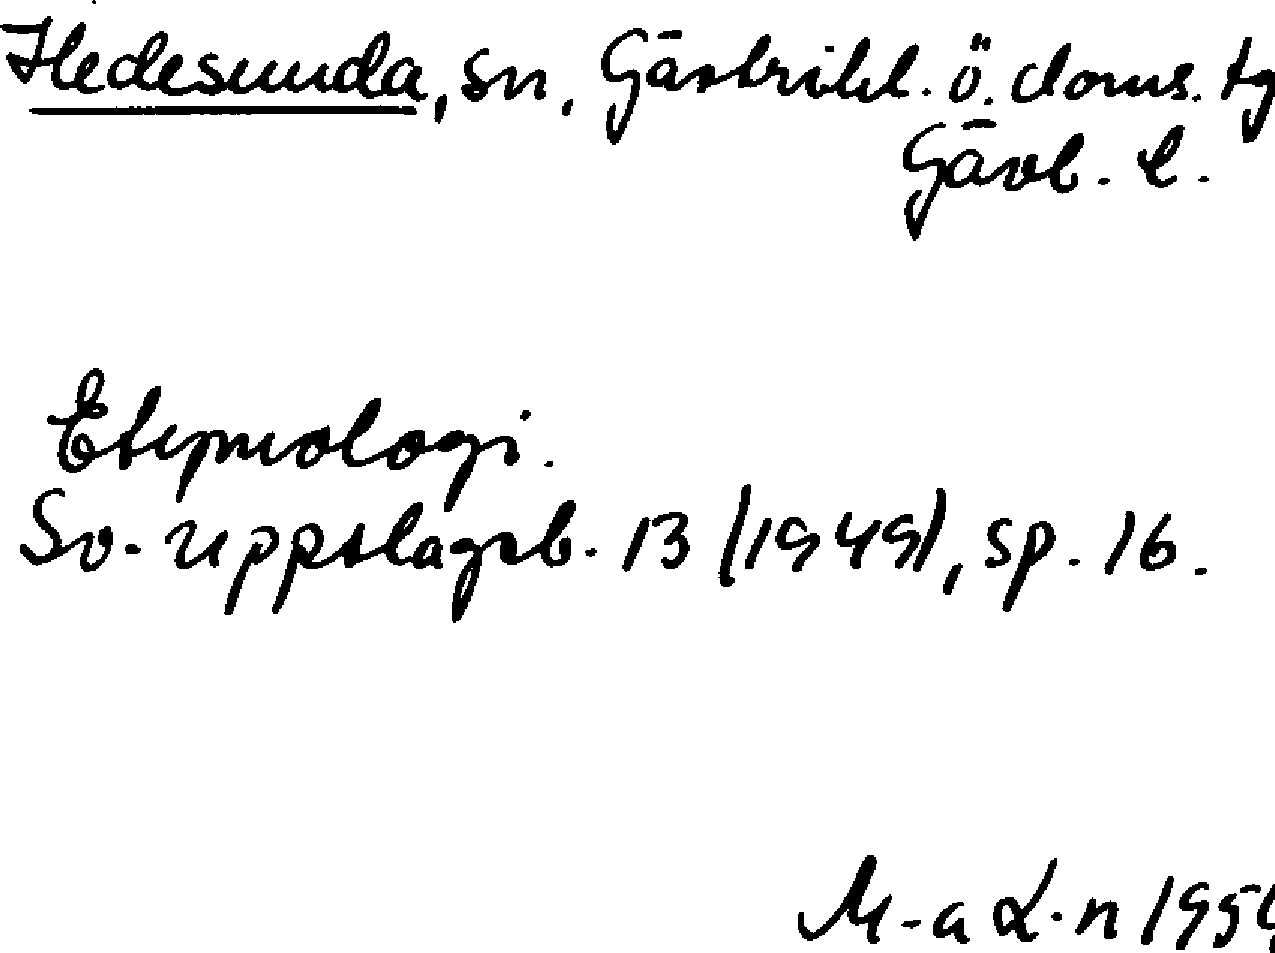 Hedesunda, sn, Gästrikl. ö. doms. tg
Gävl. l.
Etymologi.
Sv. Uppslagsb. 13 (1949), sp. 16.
M-a L-n